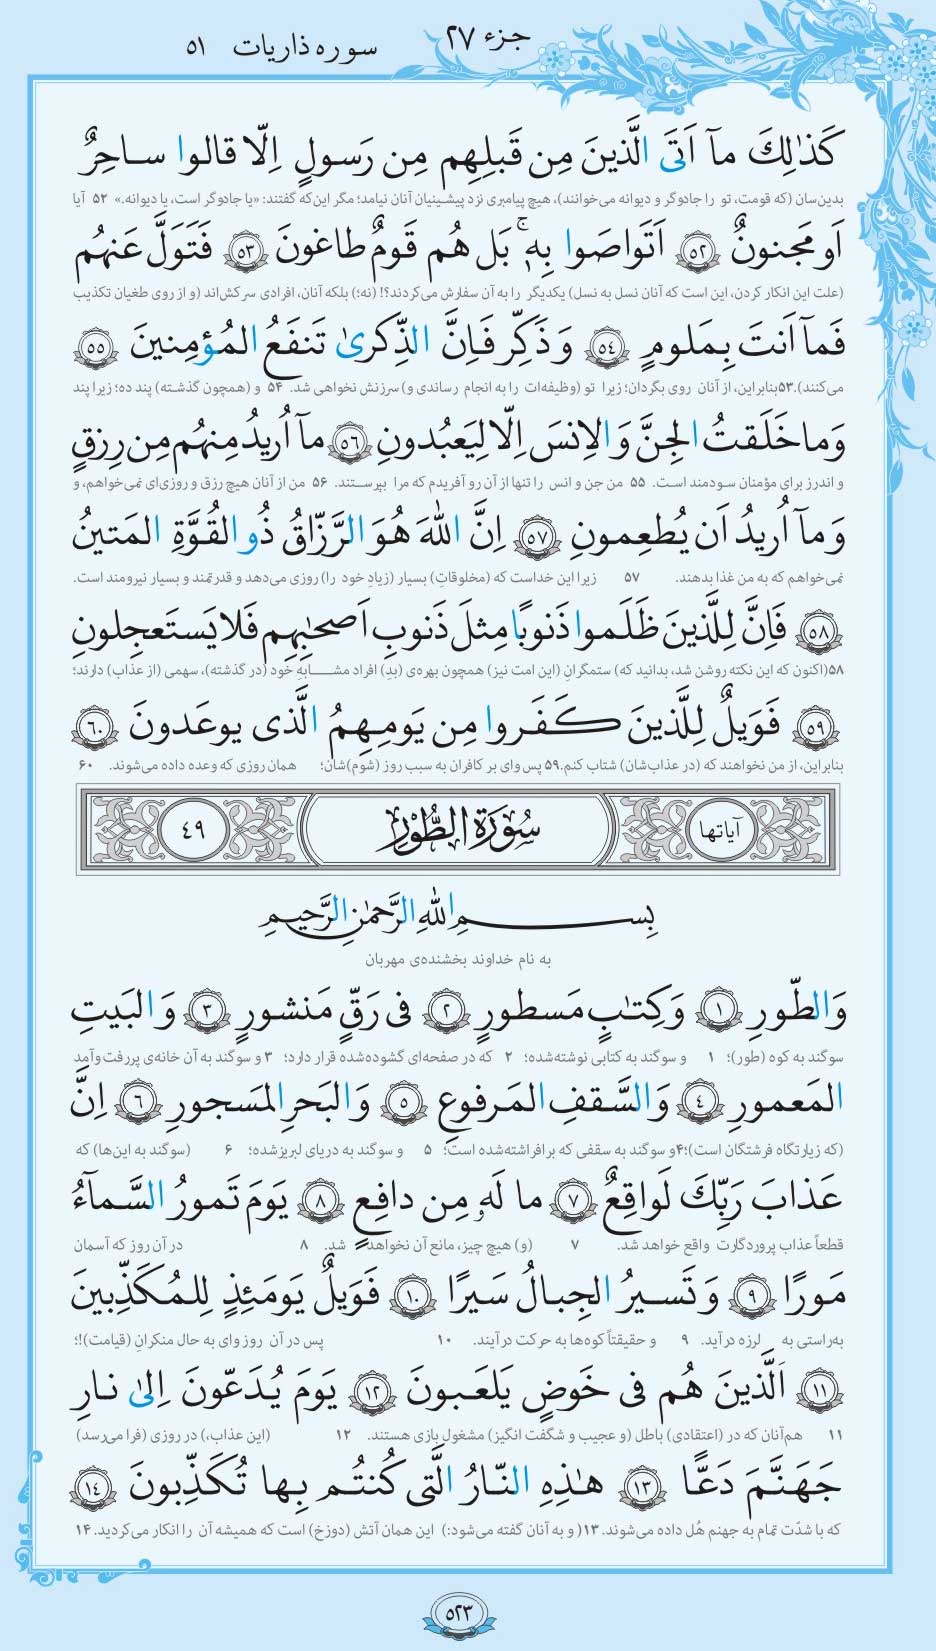 جزء ۲۷
سوره ذاریات ۵۱
كَذٰلِكَ مآ اَتَى الَّذينَ مِن قَبلِهِم مِن رَسولٍ اِلّا قالوا ساحِرٌ
بدین‌سان (که قومت، تو را جادوگر و دیوانه می‌خوانند)، هیچ پیامبری نزد پیشینیان آنان نیامد؛ مگر این‌که گفتند: «یا جادوگر است، یا دیوانه.» ۵۲ آیا
اَو مَجنونٌ ۵۲ اَتَواصَوا بِهٖ ۚ بَل هُم قَومٌ طاغونَ ۵۳ فَتَوَلَّ عَنهُم
(علت این انکار کردن، این است که آنان نسل به نسل) یکدیگر را به آن سفارش می‌کردند؟! (نه؛) بلکه آنان، افرادی سرکش‌اند (و از روی طغیان تکذیب
فَمآ اَنتَ بِمَلومٍ ۵۴ وَ ذَكِّر فَاِنَّ الذِّكرىٰ تَنفَعُ المُؤمِنينَ ۵۵
می‌کنند).۵۳بنابراین، از آنان روی بگردان؛ زیرا تو (وظیفه‌ات را به انجام رساندی و) سرزنش نخواهی شد. ۵۴ و (همچون گذشته) پند ده؛ زیرا پند
وَ ما خَلَقتُ الجِنَّ وَ الاِنسَ اِلّا لِيَعبُدونِ ۵۶ مآ اُريدُ مِنهُم مِن رِزقٍ
و اندرز برای مؤمنان سودمند است. ۵۵ من جن و انس را تنها از آن رو آفریدم که مرا بپرستند. ۵۶ من از آنان هیچ رزق و روزی‌ای نمی‌خواهم، و
وَ مآ اُريدُ اَن يُطعِمونِ ۵۷ اِنَّ اللهَ هُوَ الرَّزّاقُ ذُو القُوَّةِ المَتينُ
نمی‌خواهم که به من غذا بدهند. ۵۷ زیرا این خداست که (مخلوقاتِ) بسیار (زیادِ خود را) روزی می‌دهد و قدرتمند و بسیار نیرومند است.
۵۸ فَاِنَّ لِلَّذينَ ظَلَموا ذَنوبًا مِثلَ ذَنوبِ اَصحٰبِهِم فَلا يَستَعجِلونِ
۵۸(اکنون که این نکته روشن شد، بدانید که) ستمگرانِ (این امت نیز) همچون بهره‌ی (بدِ) افراد مشابهِ خود (در گذشته)، سهمی (از عذاب) دارند؛
۵۹ فَوَيلٌ لِلَّذينَ كَفَروا مِن يَومِهِمُ الَّذى يوعَدونَ ۶۰
بنابراین، از من نخواهند که (در عذاب‌شان) شتاب کنم.۵۹ پس وای بر کافران به سبب روز (شوم)شان؛ همان روزی که وعده داده می‌شوند. ۶۰
آیاتها سُورَةُ الطُّورِ ۴۹
بِسمِ اللهِ الرَّحمٰنِ الرَّحيمِ
به نام خداوند بخشنده‌ی مهربان
وَالطّورِ ۱ وَكِتٰبٍ مَسطورٍ ۲ فى رَقٍّ مَنشورٍ ۳ وَ البَيتِ
سوگند به کوه (طور)؛ ۱ و سوگند به کتابی نوشته‌شده؛ ۲ که در صفحه‌ای گشوده‌شده قرار دارد؛ ۳ و سوگند به آن خانه‌ی پررفت‌وآمد
المَعمورِ ۴ وَالسَّقفِ المَرفوعِ ۵ وَ البَحرِ المَسجورِ ۶ اِنَّ
(که زیارتگاه فرشتگان است)؛۴و سوگند به سقفی که برافراشته‌شده است؛ ۵ و سوگند به دریای لبریزشده؛ ۶ (سوگند به این‌ها) که
عَذابَ رَبِّكَ لَواقِعٌ ۷ ما لَهٗ مِن دافِعٍ ۸ يَومَ تَمورُ السَّمآءُ
قطعاً عذاب پروردگارت واقع خواهد شد. ۷ (و) هیچ چیز، مانع آن نخواهد شد. ۸ در آن روز که آسمان
مَورًا ۹ وَ تَسيرُ الجِبالُ سَيرًا ۱۰ فَوَيلٌ يَومَئِذٍ لِلمُكَذِّبينَ
به‌راستی به لرزه درآید. ۹ و حقیقتاً کوه‌ها به حرکت درآیند. ۱۰ پس در آن روز وای به حال منکرانِ (قیامت)!؛
۱۱ اَلَّذينَ هُم فى خَوضٍ يَلعَبونَ ۱۲ يَومَ يُدَعّونَ اِلىٰ نارِ
۱۱ هم‌آنان که در (اعتقادی) باطل (و عجیب و شگفت انگیز) مشغول بازی هستند. ۱۲ (این عذاب،) در روزی (فرا می‌رسد)
جَهَنَّمَ دَعًّا ۱۳ هٰذِهِ النّارُ الَّتى كُنتُم بِها تُكَذِّبونَ ۱۴
که با شدّت تمام به جهنم هُل داده می‌شوند. ۱۳( و به آنان گفته می‌شود:) این همان آتش (دوزخ) است که همیشه آن را انکار می‌کردید. ۱۴
۵۲۳